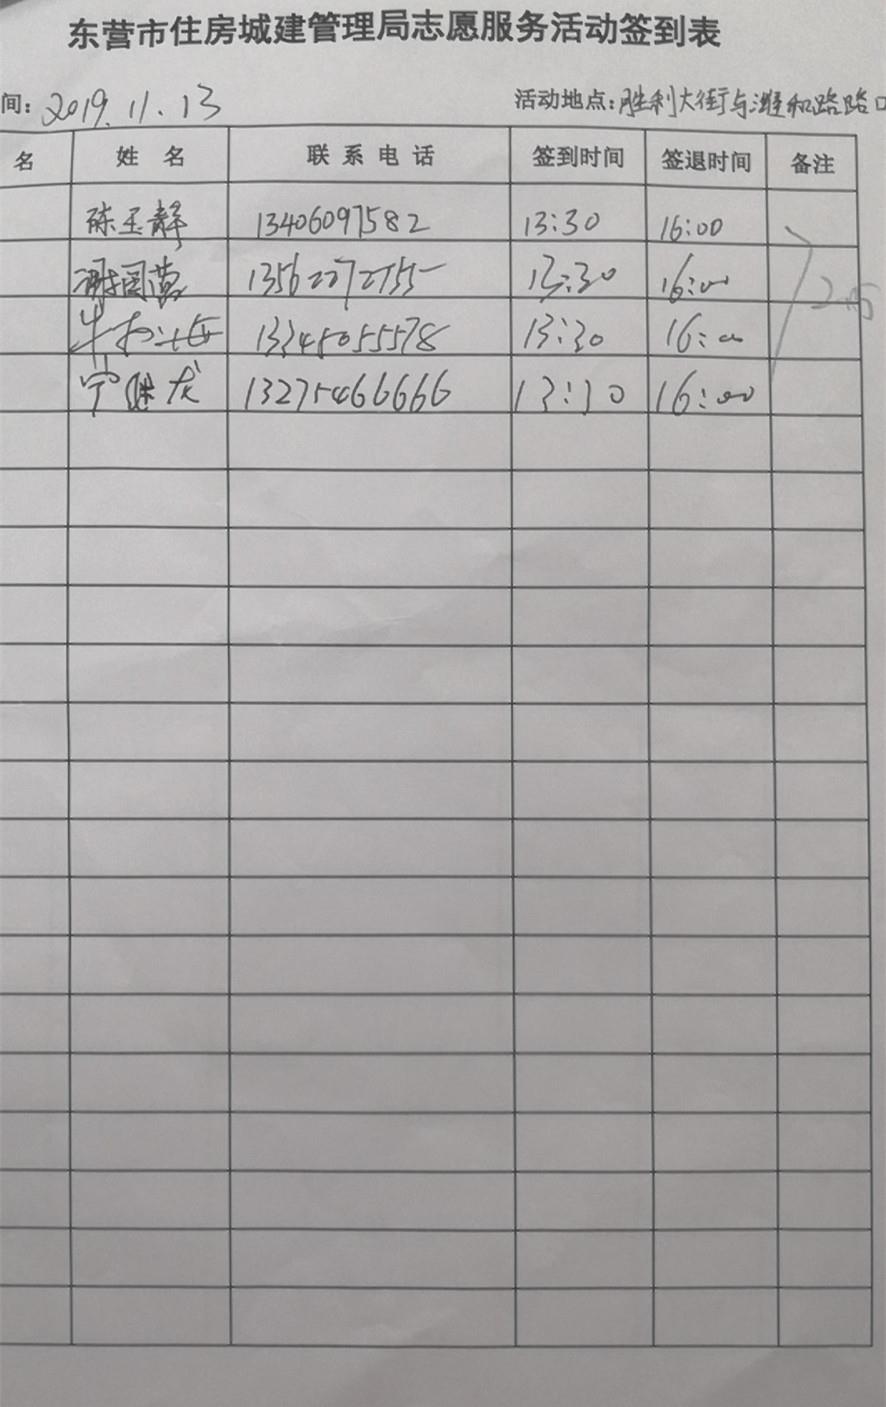 东营市住房城建管理局志愿服务活动签到表
间: 2019.11.13 活动地点: 胜利大街与潍和路路口
名 姓 名 联 系 电 话 签到时间 签退时间 备注
陈玉静 13406097582 13:30 16:00
谢国营 13562272755 13:30 16:00
牛 13345055578 13:30 16:00
宁继龙 13275466666 13:30 16:00